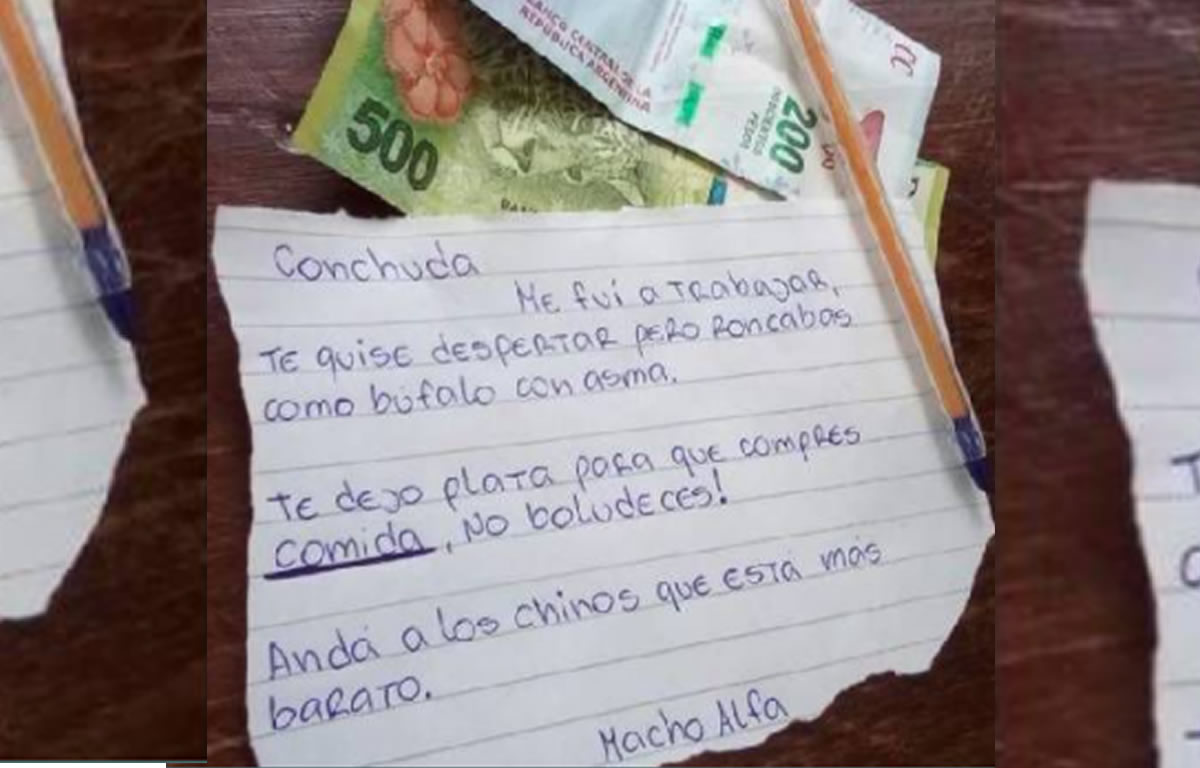 500
BANCO CENTRAL DE LA
REPÚBLICA ARGENTINA
200
DOSCIENTOS
PESOS
CC
Conchuda
Me fui a trabajar,
te quise despertar pero roncabas
como búfalo con asma.
Te dejo plata para que compres
comida, no boludeces!
Andá a los chinos que está más
barato.
Macho Alfa